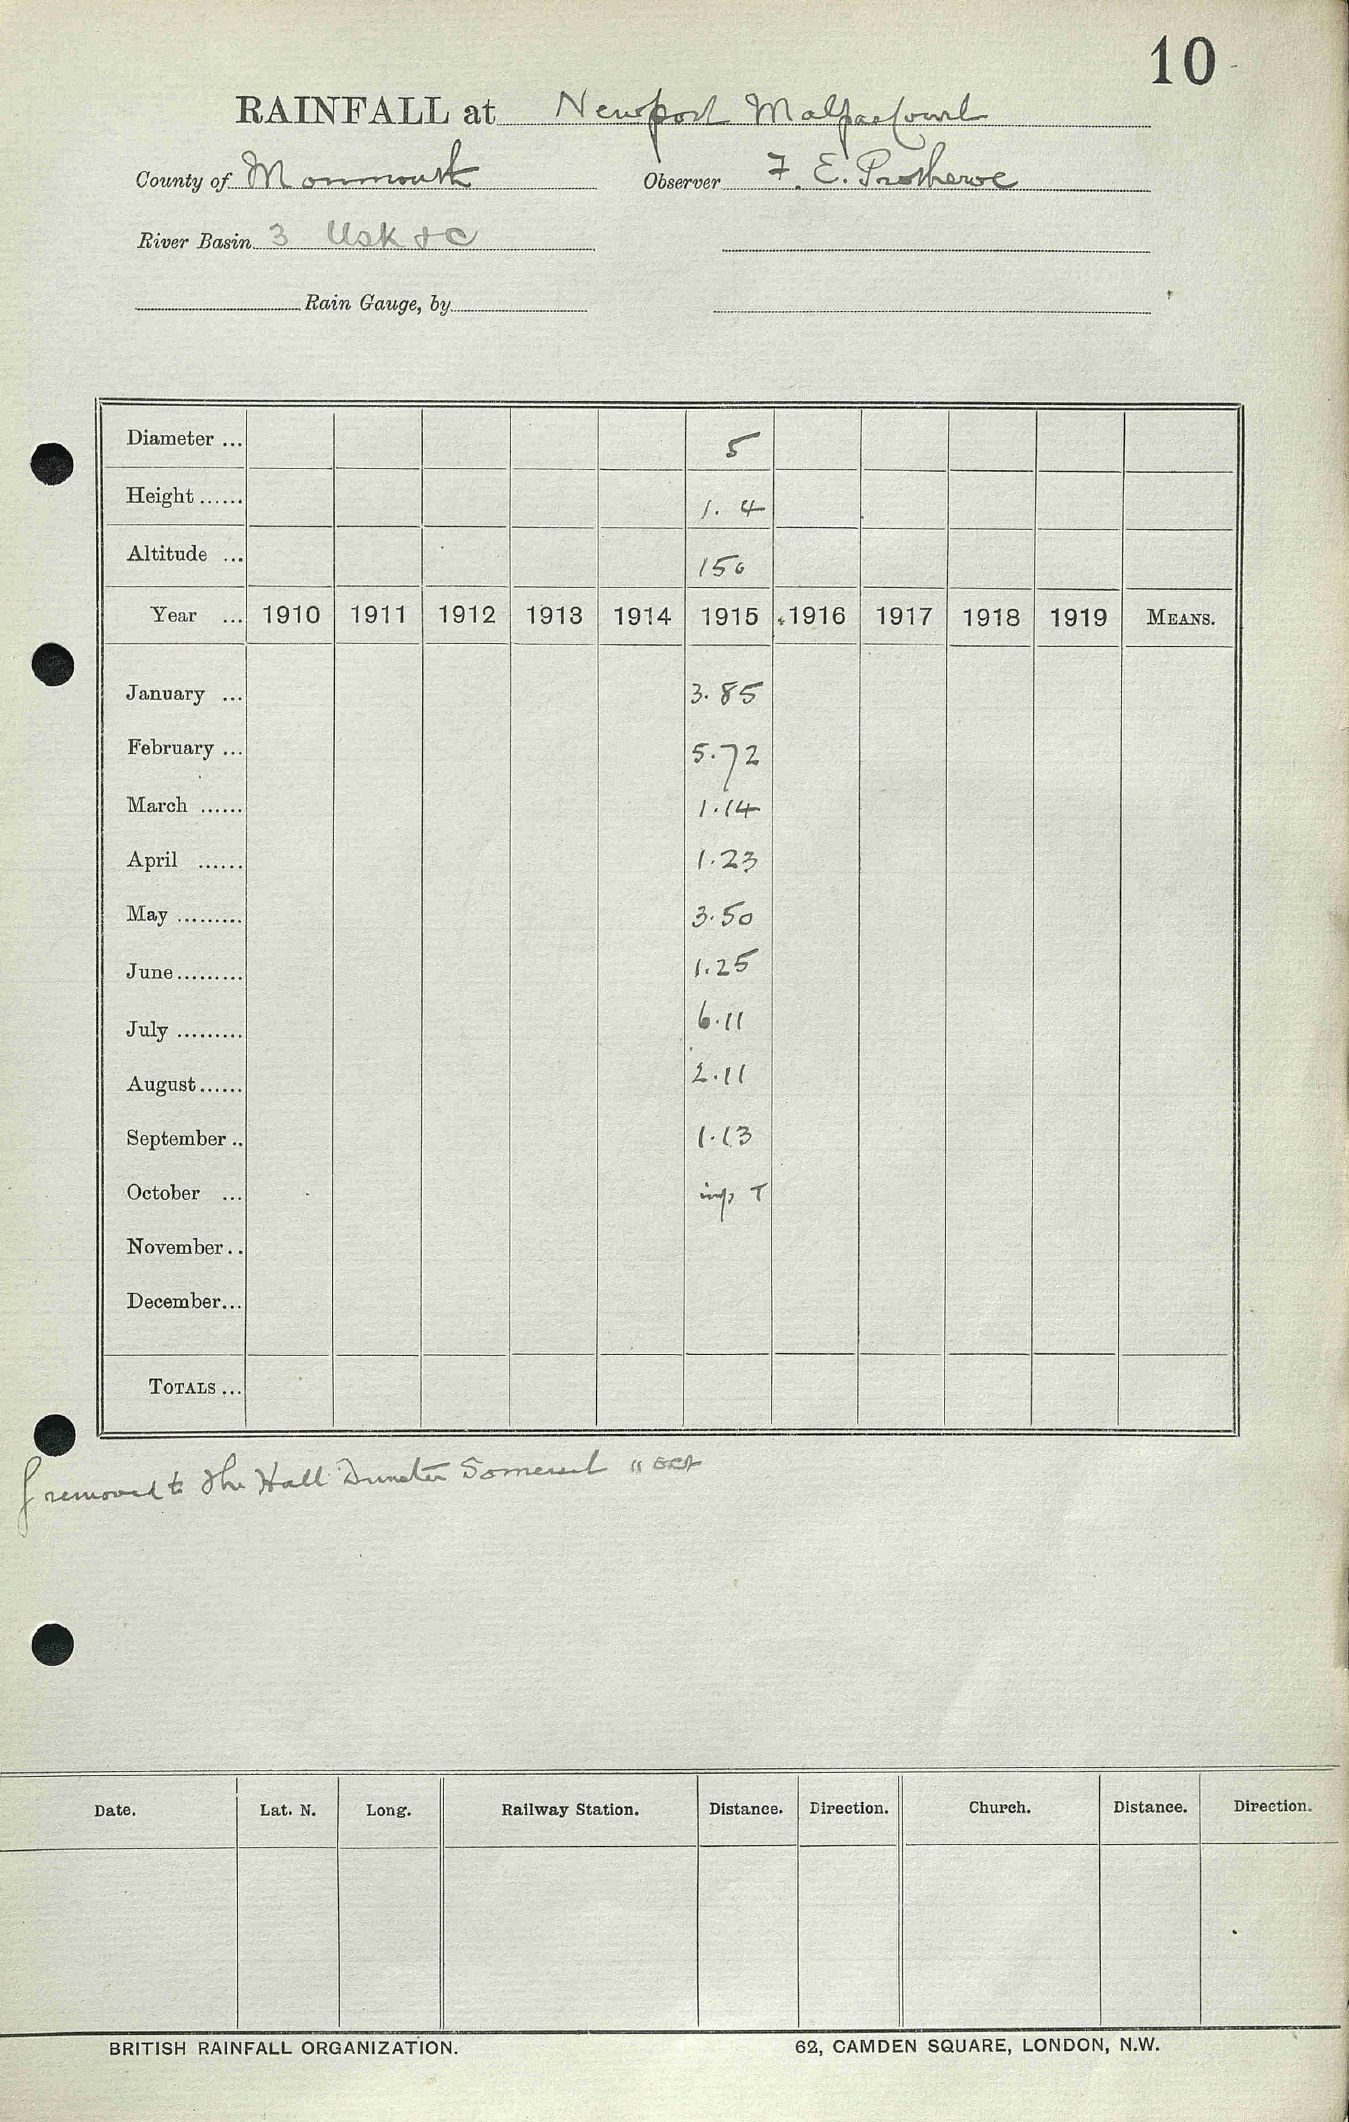 10
RAINFALL at Newport Malpas Court
County of Monmouth Observer F. E. Prothero
River Basin 3 Usk &c
Rain Gauge, by
Diameter ... 5
Height ...... 1. 4
Altitude ... 150
Year ... 1910 1911 1912 1913 1914 1915 1916 1917 1918 1919 MEANS.
January ... 3.85
February ... 5.72
March ...... 1.14
April ...... 1.23
May ......... 3.50
June ......... 1.25
July ......... 6.11
August ...... 2.11
September .. 1.13
October ... inp T
November ..
December ...
TOTALS ...
removed to The Hall Dunster Somerset
Date. Lat. N. Long. Railway Station. Distance. Direction. Church. Distance. Direction.
BRITISH RAINFALL ORGANIZATION. 62, CAMDEN SQUARE, LONDON, N.W.